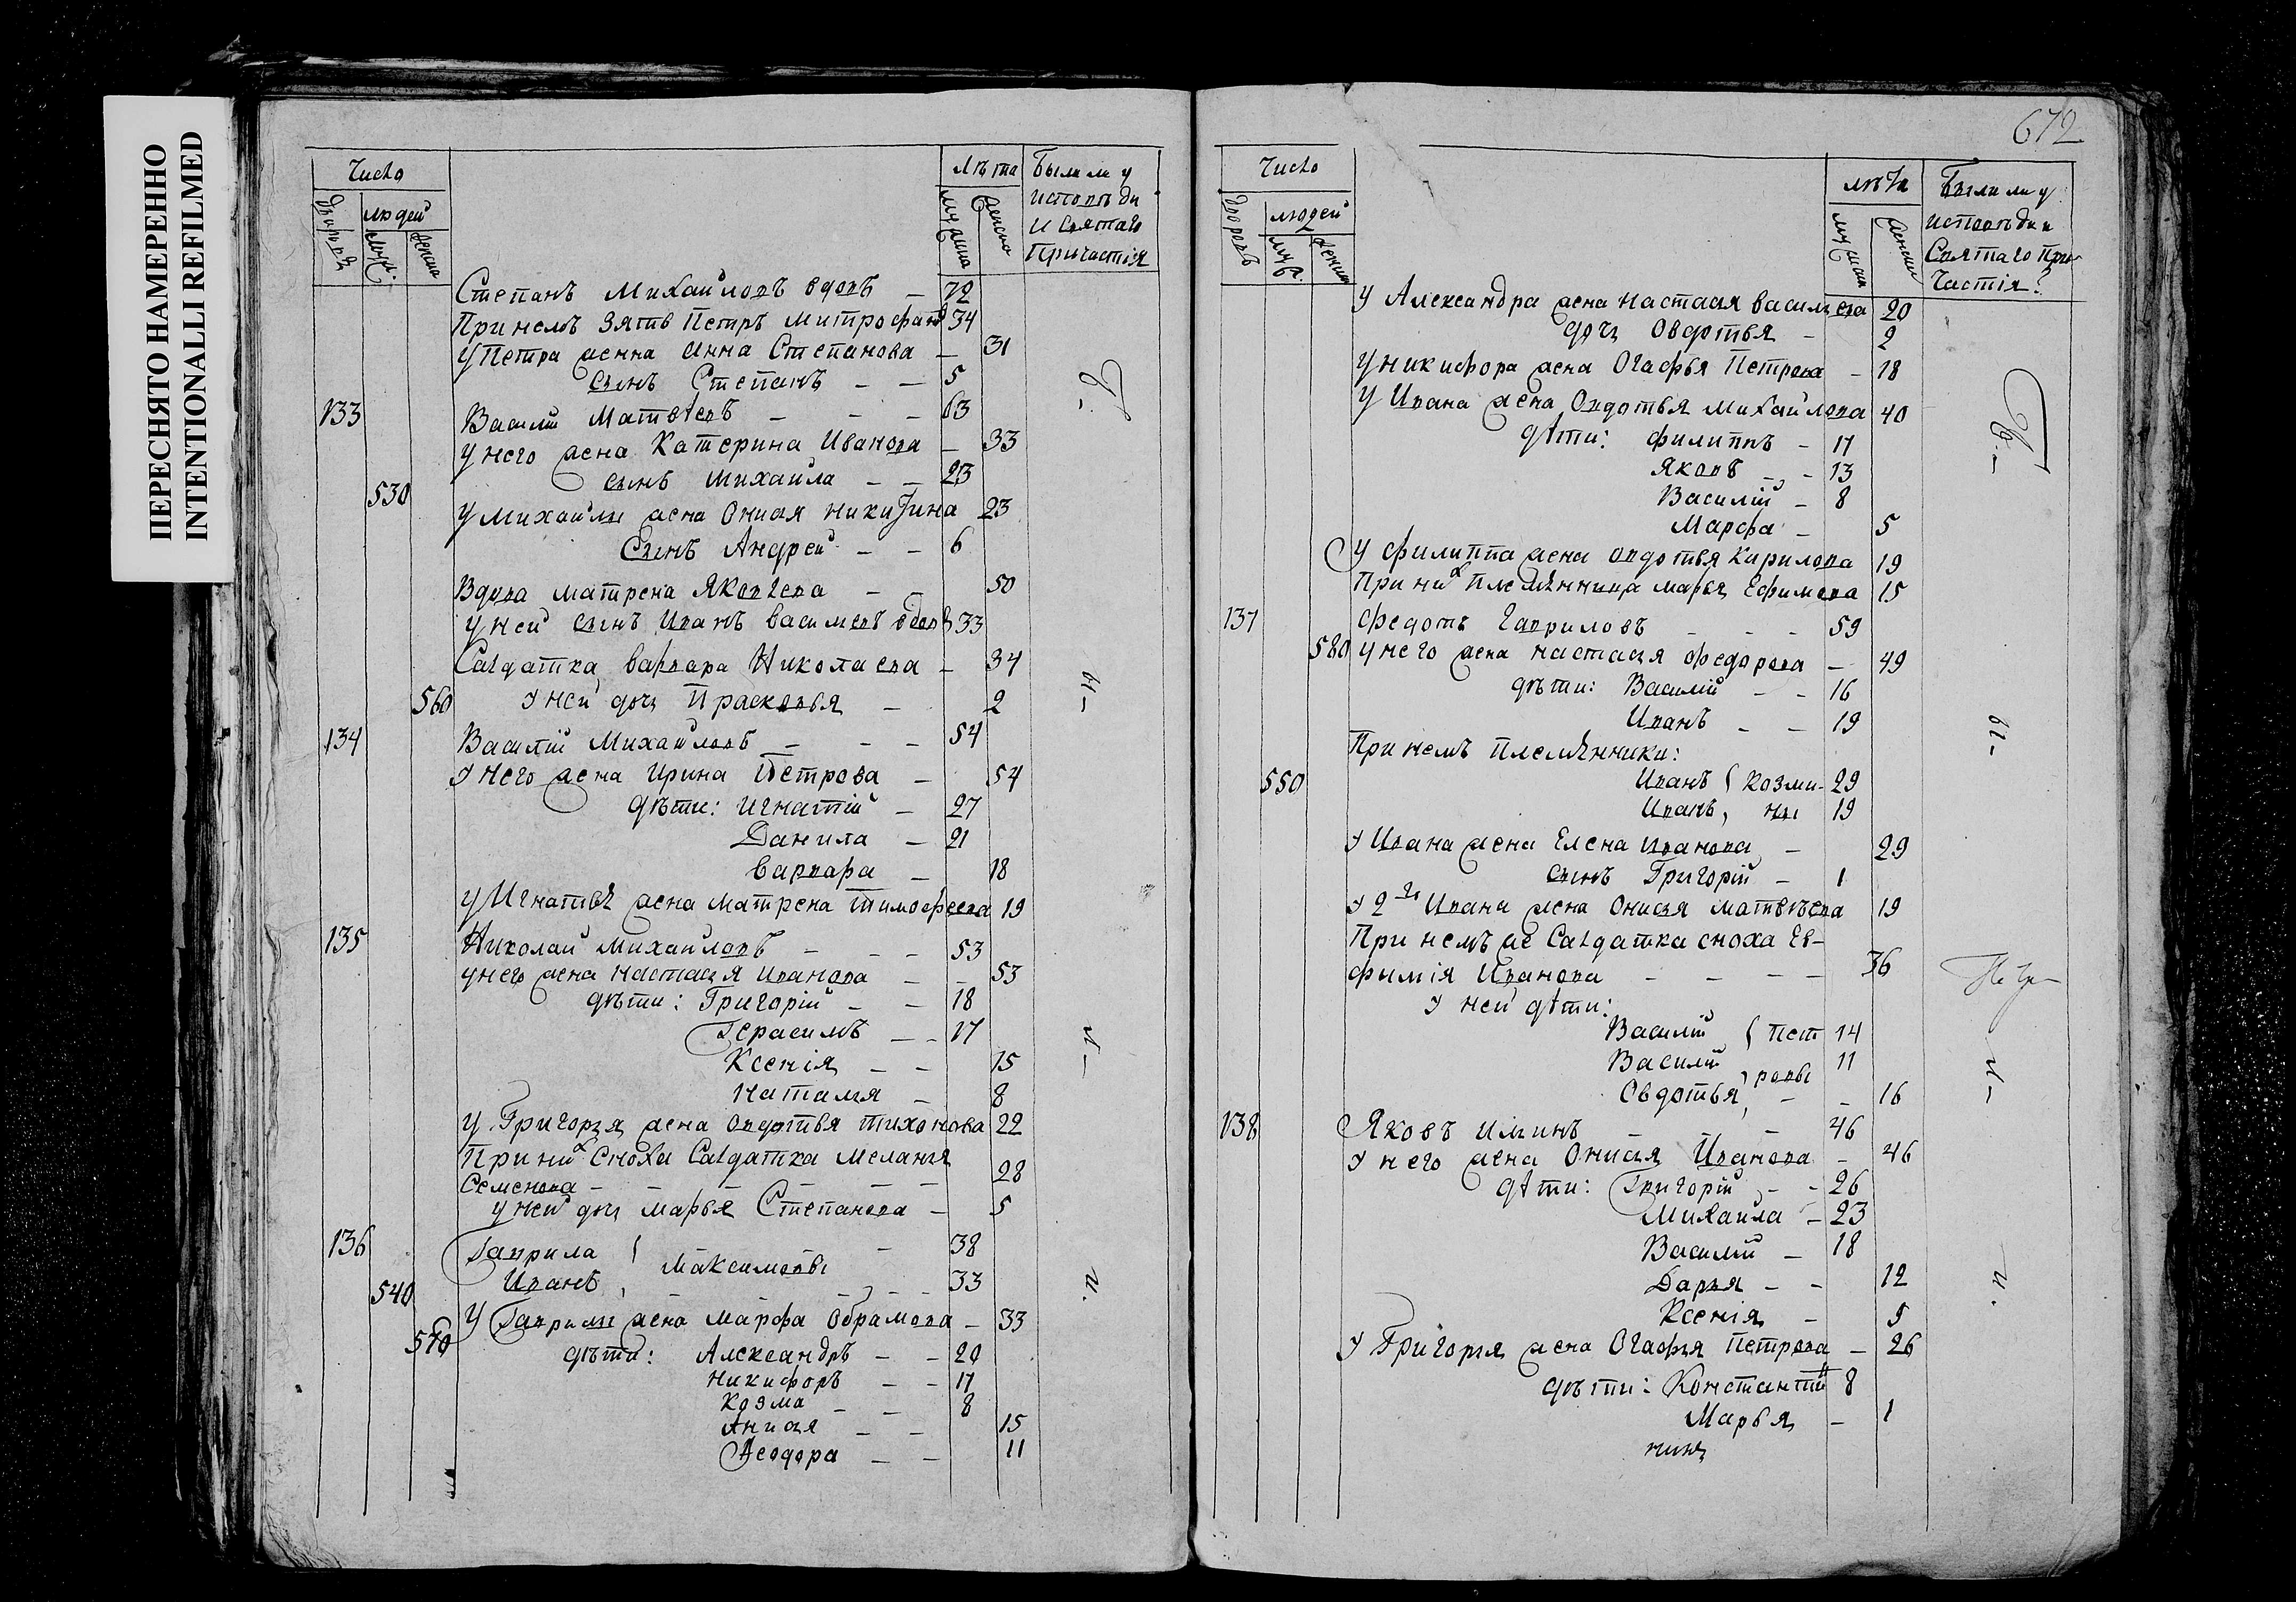 ПЕРЕСНЯТО НАМЕРЕННО
INTENTIONALLI REFILMED
Число
людей
Лѣта
Были ли у
исповѣди
и Святаго
Причастія
Степанъ Михайловъ вдовъ — 72
При немъ зять Петръ Митрофан 34
У Петра жена Анна Степанова — 31
сынъ Степанъ — — 5
133 Василій Матвѣевъ — — — 63
у него жена Катерина Иванова — 33
сынъ Михаила — — 23
530
у Михайлы жена Онисья Никитина 23
Сынъ Андрей — — 6
Вдова Матрена Яковлева — — 50
у ней сынъ Иванъ Васильевъ вдовъ 33
Салдатка Варвара Николаева — 34
560 У ней дочь Прасковья — 2
134 Василій Михайловъ — — — 54
У него жена Ирина Петрова — 54
дѣти: Игнатій — 27
Данила — 21
Варвара — 18
У Игнатья жена Матрена Тимофеева 19
135 Николай Михайловъ — — — 53
у него жена Настасья Иванова — — 53
дѣти: Григорій — — 18
Герасимъ — — 17
Ксенія — — 15
Наталья — 8
У Григорья жена Овдотья Тихонова 22
При них сноха Салдатка Меланья
Семенова — — — — — 28
у ней дочь Марья Степанова — 5
136 Гаврила — 38
Максимовы
Иванъ, — — — 33
540
У Гаврилы жена Марфа Обрамова — 33
570
дѣти: Александръ — — 20
Никифоръ — — 17
Козма — — 8
Анисья — — 15
Ѳеодора — — 11
672
Число
дворовъ
людей
лѣта
Были ли у
исповѣди и
Святаго При-
частія?
У Александра жена Настасья Васильева 20
дочь Овдотья — 2
У Никифора жена Огафья Петрова — 18
У Ивана жена Овдотья Михайлова 40
дѣти: Филиппъ — 17
Яковъ — — 13
Василій — 8
Марфа — 5
У Филиппа жена Овдотья Кирилова 19
При них племянница Марья Ефимова 15
137 Федотъ Гавриловъ — — — 59
580 У него жена Настасья Федорова — 49
дѣти: Василій — — 16
Иванъ — — 19
При немъ племянники:
550 Иванъ { Козми- 29
Иванъ, ны 19
У Ивана жена Елена Иванова — 29
сынъ Григорій — 1
У 2го Ивана жена Онисья Матвѣева 19
При немъ же Салдатка сноха Ев-
фимія Иванова — — — — 36
У ней дѣти:
Василій { Пет 14
Василій 11
ровы
Овдотья, — — 16
138 Яковъ Илинъ — — 46
У него жена Онисья Иванова — 46
дѣти: Григорій — — 26
Михаила — 23
Василій — 18
Дарья — — 12
Ксенія — 9
У Григорья жена Огафья Петрова — 26
дѣти: Константй 8
Марья — 1